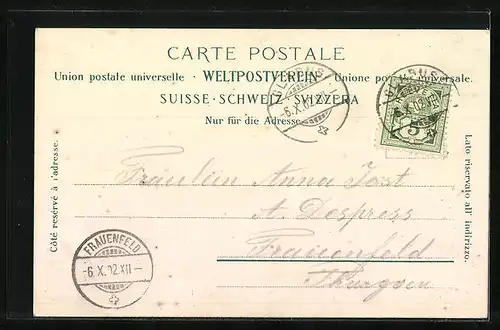 CARTE POSTALE
Union postale universelle · WELTPOSTVEREIN · Unione postale universale.
SUISSE · SCHWEIZ · SVIZZERA
Nur für die Adresse.
GLARUS
-6.X.02.
5
Côté réservé à l'adresse.
Lato riservato all' indirizzo.
Fräulein Anna Jost
A. Despress
Frauenfeld
Thurgau
FRAUENFELD
-6.X.02.XII-